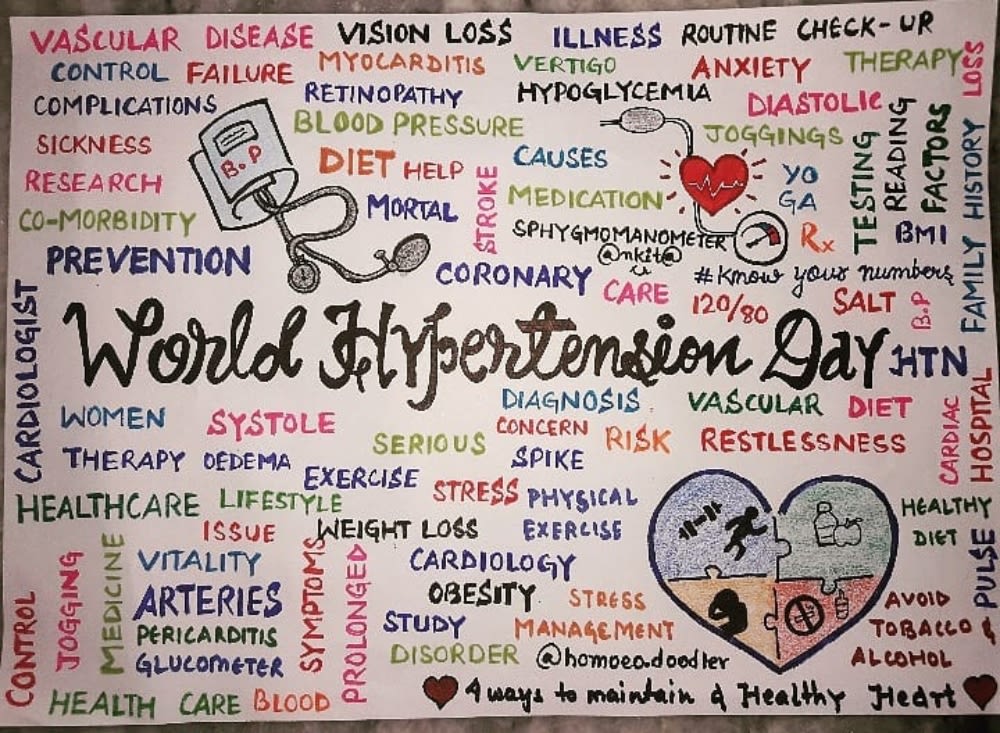 VASCULAR DISEASE VISION LOSS ILLNESS ROUTINE CHECK-UP
CONTROL FAILURE MYOCARDITIS VERTIGO ANXIETY THERAPY
LOSS
COMPLICATIONS RETINOPATHY HYPOGLYCEMIA DIASTOLIC
BLOOD PRESSURE JOGGINGS
SICKNESS B.P DIET HELP CAUSES
RESEARCH MORTAL STROKE MEDICATION YO
GA
TESTING
READING
FACTORS
FAMILY HISTORY
CO-MORBIDITY SPHYGMOMANOMETER Rx BMI
@nkit@
PREVENTION CORONARY CARE #Know your numbers
120/80 SALT B.P
CARDIOLOGIST
World Hypertension Day HTN
DIAGNOSIS VASCULAR DIET
CARDIAC
HOSPITAL
WOMEN SYSTOLE SERIOUS CONCERN RISK RESTLESSNESS
THERAPY OEDEMA SPIKE
EXERCISE STRESS PHYSICAL
HEALTHCARE LIFESTYLE EXERCISE
ISSUE WEIGHT LOSS
HEALTHY
DIET
PULSE
CONTROL
JOGGING
MEDICINE
VITALITY SYMPTOMS PROLONGED CARDIOLOGY
ARTERIES OBESITY STRESS
MANAGEMENT
AVOID
TOBACCO &
ALCOHOL
PERICARDITIS STUDY
GLUCOMETER DISORDER @homoeo.doodler
HEALTH CARE BLOOD
4 ways to maintain a Healthy Heart